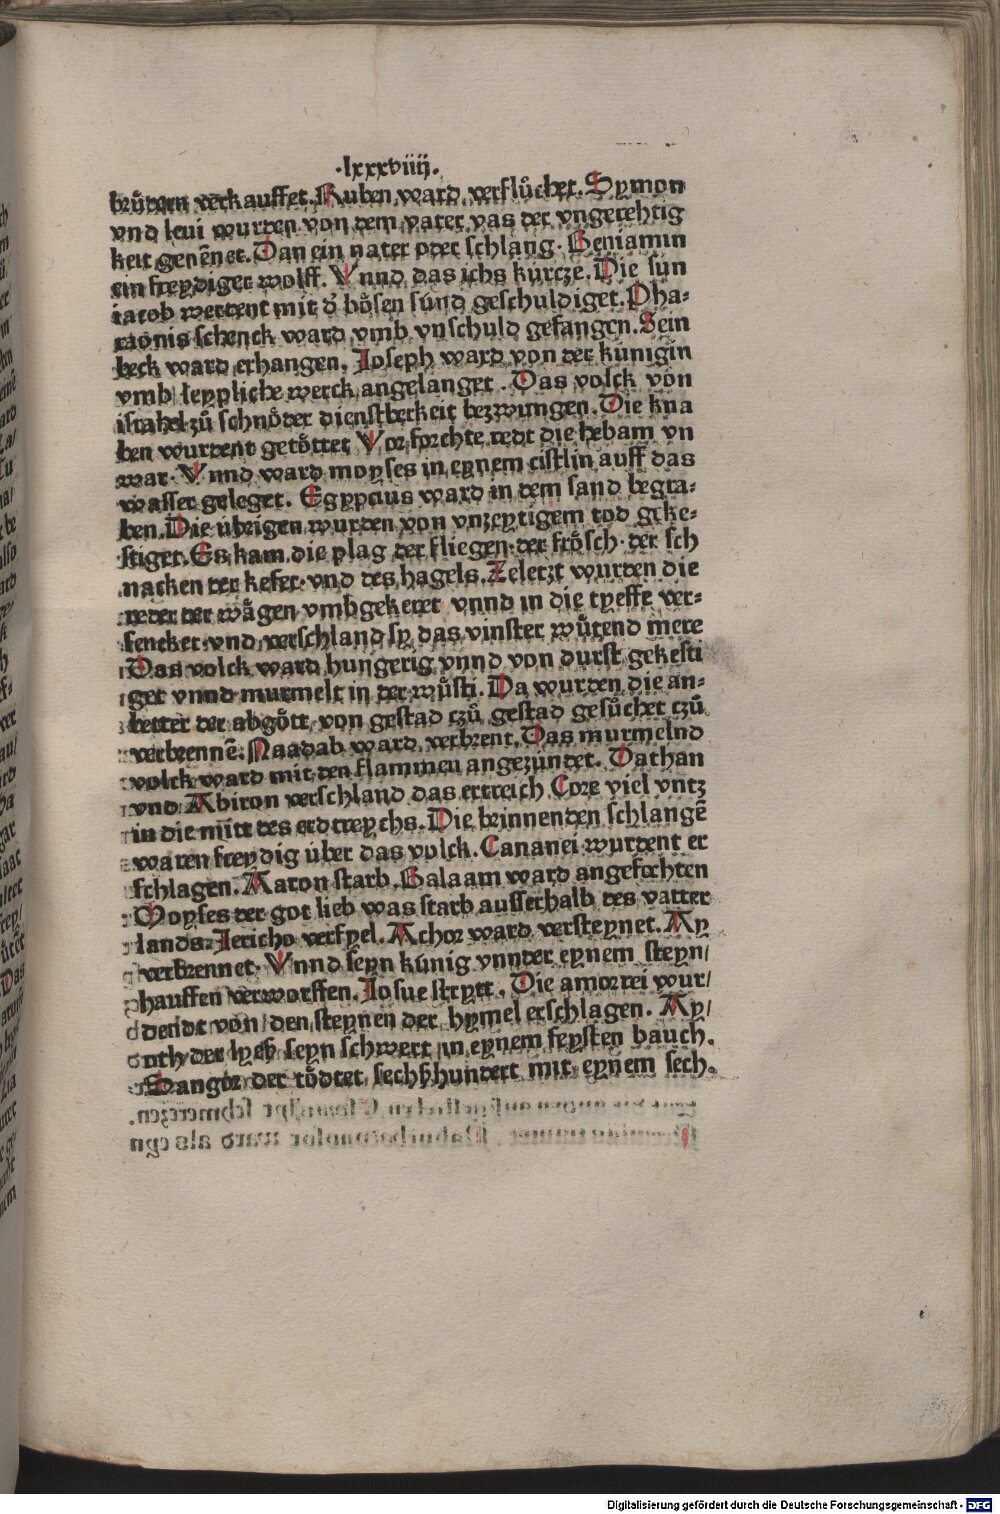 ·lxxxviiij·
bruͤdern verkauffet. Ruben ward verfluͤchet. Symon
vnd leui wurden von dem vater vas der vngerehtig
keit genēnet. Dan ein nater oder schlang. Beniamin
ein freydiger wolff. Vnnd das ichs kürcze. Die sün
iacob werdent mit d' boͤsen sünd geschuldiget. Pha-
raonis schenck ward vmb vnschuld gefangen. Sein
beck ward erhangen. Ioseph ward von der künigin
vmb leypliche werck angelanget. Das volck von
israhel zuͤ schnoͤder dienstberkeit bezwungen. Die kna
ben wurdent getoͤttet Vor forchte redt die hebam vn
war. Vnnd ward moyses in eynem cistlin auff das
wasser geleget. Egypcius ward in dem sand begra-
ben. Die übrigen wurden von vnzeytigem tod geke-
stiget. Es kam die plag der fliegen. der froͤsch. der sch
nacken der kefer. vnd des hagels. Zeletzt wurden die
reder der waͤgen vmbgekeret vnnd in die tyeffe ver-
sencket. vnd verschland sy das vinster wuͤtend mere
Das volck ward hungerig vnnd von durst gekesti
get vnnd murmelt in der wuͤsti. Da wurden die an-
better der abgoͤtt von gestad czuͤ gestad gesuͤchet czuͤ
verbrennē. Naadab ward verbrent. Das murmelnd
volck ward mit den flammen angezündet. Dathan
vnd Abiron verschland das ertreich Core viel vntz
in die mitt des erdtreychs. Die brinnenden schlangē
waren freydig über das volck. Cananei wurdent er
schlagen. Aaron starb. Balaam ward angefochten
Moyses der got lieb was starb ausserhalb des vatter
lands. Iericho verfyel. Achor ward versteynet. Ay
verbrennet. Vnnd seyn künig vnnder eynem steyn/
hauffen verworffen. Iosue strytt. Die amorrei wur/
dendt von den steynen der hymel erschlagen. Ay/
oth der lyeß seyn schwert in eynem feysten bauch.
Sangor der toͤdtet sechßhundert mit eynem sech.
Digitalisierung gefördert durch die Deutsche Forschungsgemeinschaft - DFG